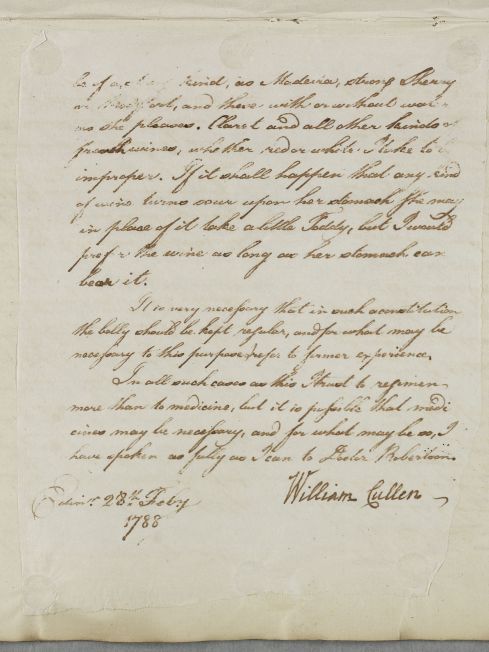 be of a kind, as Madeira, strong Sherry
or Port, and these with or without water
as she pleases. Claret and all other kinds of
french wines, whether red or white I take to be
improper. If it shall happen that any kind
of wine turns sour upon her stomach She may
in place of it take a little Toddy, but I would
prefer the wine as long as her stomach can
bear it.
It is very necessary that in such a constitution
the belly should be kept regular, and for what may be
necessary to this purpose I refer to former experience.
In all such cases as this I trust to regimen
more than to medicine, but it is possible that medi
cines may be necessary, and for what may be so, I
have spoken as fully as I can to Doctor Robertson.
Edinr. 28th Feby William Cullen
1788